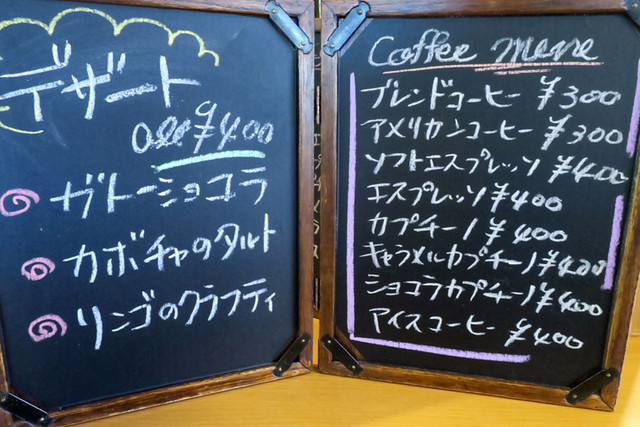 デザート
All ¥400
ガトーショコラ
カボチャのタルト
リンゴのクラフティ
Coffee Mene
ブレンドコーヒー ¥300
アメリカンコーヒー ¥300
ソフトエスプレッソ ¥400
エスプレッソ ¥400
カプチーノ ¥400
キャラメルカプチーノ ¥400
ショコラカプチーノ ¥400
アイスコーヒー ¥400